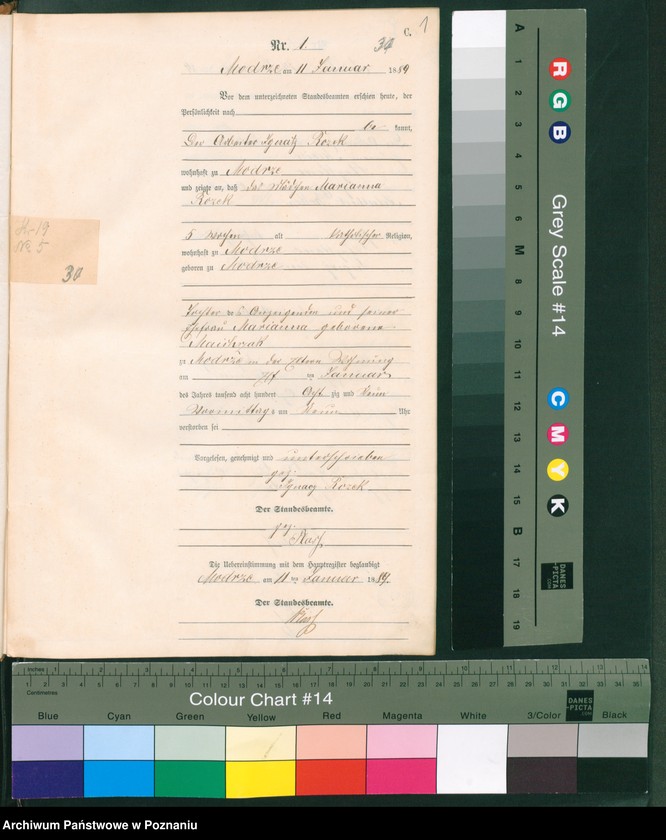 C.
1
Nr. 1.
30
Modrze am 11 Januar 1889
Vor dem unterzeichneten Standesbeamten erschien heute, der
Persönlichkeit nach
be kannt,
Der Arbeiter Ignatz Rozek
wohnhaft zu Modrze
und zeigte an, daß das Mädchen Marianna
Rozek
5 Wochen alt katholischer Religion,
wohnhaft zu Modrze
geboren zu Modrze
Tochter des Anzeigenden und seiner
Ehefrau Marianna geborene
zu Modrze in der Wohnung
am ten Januar
des Jahres tausend acht hundert Acht zig und Neun
Vormittags um Neun Uhr
verstorben sei
Vorgelesen, genehmigt und unterschrieben
gez.
Ignacy Rozek
Der Standesbeamte.
gez.
Die Uebereinstimmung mit dem Hauptregister beglaubigt
Modrze am 11 ten Januar 1889.
Der Standesbeamte.
№ 5
30
A 1 2 3 4 5 6 M 8 9 10 11 12 13 14 15 B 17 18 19
R G B
Grey Scale #14
C M Y K
DANES-PICTA
.COM
Inches 1 2 3 4 5 6 7 8 9 10 11 12 13 14
Centimetres
Colour Chart #14
DANES-PICTA
.COM
Blue Cyan Green Yellow Red Magenta White 3/Color Black
Archiwum Państwowe w Poznaniu